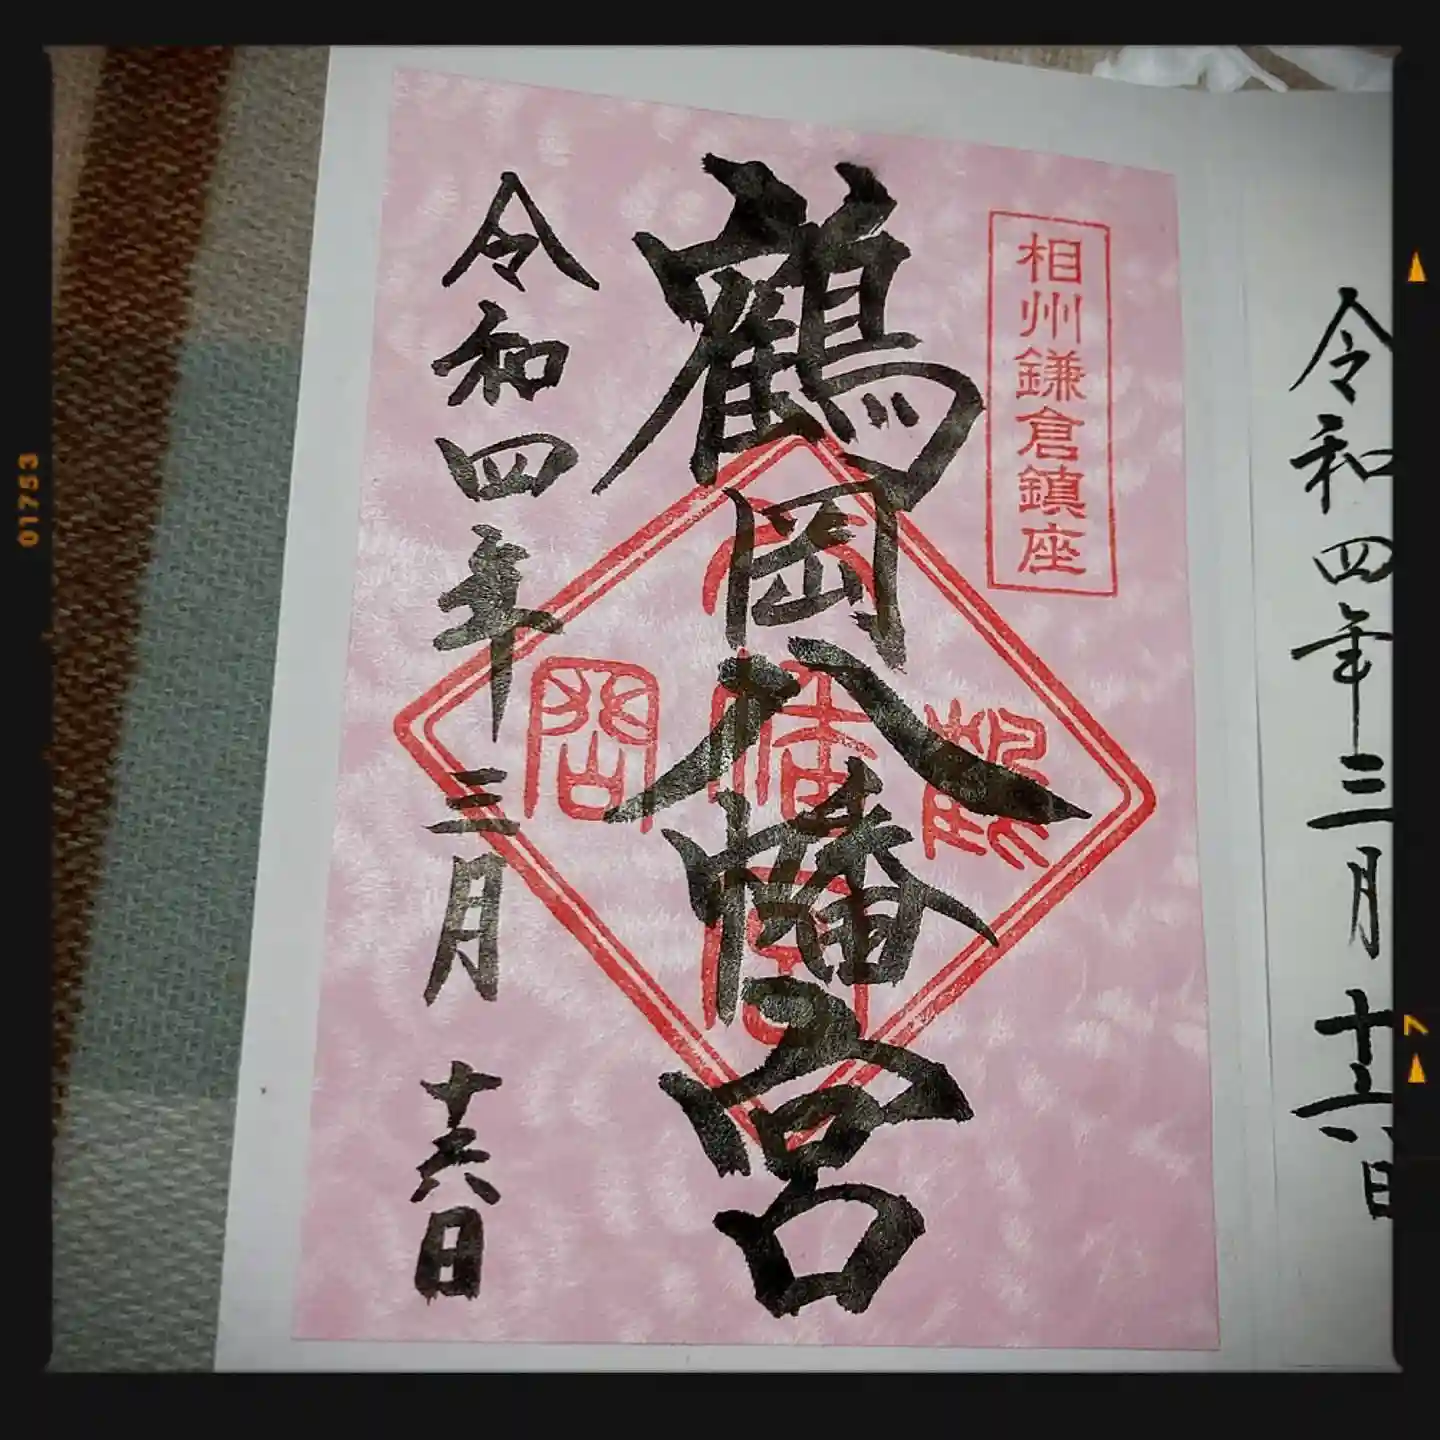 相州鎌倉鎮座
鶴岡八幡宮
令和四年三月十六日
令和四年三月十六日
01753
7